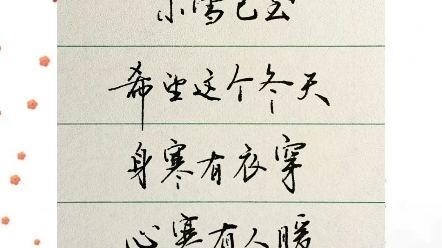 小雪已至
希望这个冬天
身寒有衣穿
心寒有人暖